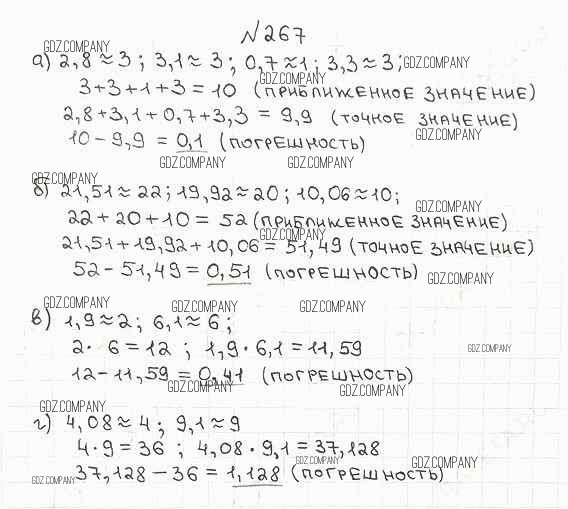 №267
GDZ.COMPANY
а) 2,8≈3; 3,1≈3; 0,7≈1; 3,3≈3; GDZ.COMPANY
GDZ.COMPANY
3+3+1+3=10 (ПРИБЛИЖЕННОЕ ЗНАЧЕНИЕ)
2,8+3,1+0,7+3,3=9,9 (ТОЧНОЕ ЗНАЧЕНИЕ)
GDZ.COMPANY
10-9,9=0,1 (ПОГРЕШНОСТЬ)
GDZ.COMPANY GDZ.COMPANY
GDZ.COMPANY
б) 21,51≈22; 19,92≈20; 10,06≈10;
GDZ.COMPANY
22+20+10=52 (ПРИБЛИЖЕННОЕ ЗНАЧЕНИЕ)
GDZ.COMPANY
21,51+19,92+10,06=51,49 (ТОЧНОЕ ЗНАЧЕНИЕ)
52-51,49=0,51 (ПОГРЕШНОСТЬ) GDZ.COMPANY
GDZ.COMPANY GDZ.COMPANY GDZ.COMPANY
в) 1,9≈2; 6,1≈6;
2·6=12; 1,9·6,1=11,59 GDZ.COMPANY
12-11,59=0,41 (ПОГРЕШНОСТЬ)
GDZ.COMPANY GDZ.COMPANY
GDZ.COMPANY
г) 4,08≈4; 9,1≈9
4·9=36; 4,08·9,1=37,128
GDZ.COMPANY GDZ.COMPANY
37,128-36=1,128 (ПОГРЕШНОСТЬ)
GDZ.COMPANY